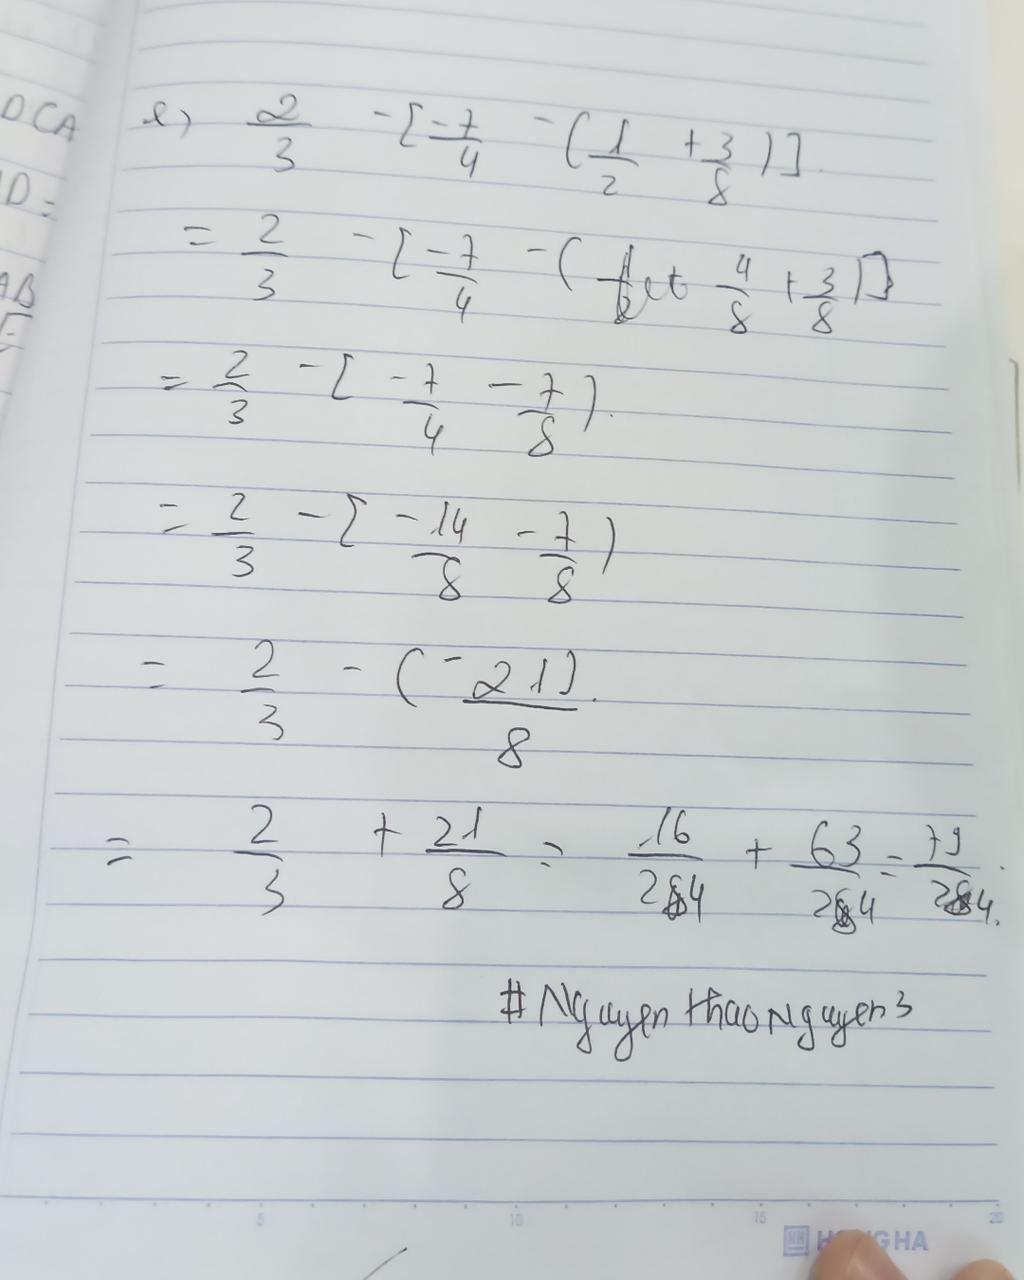 DCA
D =
AB
e) 2/3 - [-7/4 - (1/2 + 3/8)]
= 2/3 - [-7/4 - (4/8 + 3/8)]
= 2/3 - [-7/4 - 7/8).
= 2/3 - [-14/8 - 7/8)
= 2/3 - (-21/8].
= 2/3 + 21/8 = 16/24 + 63/24 = 79/24.
# Nguyen thao Nguyen 3
5 10 15 20
HONG HA